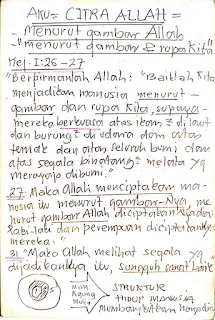 AKU = CITRA ALLAH =
- Menurut gambar Allah
- "menurut gambar & rupa kita"
Kej. 1:26-27
"Berfirmanlah Allah: "Baiklah Kita
menjadikan manusia menurut
gambar dan rupa Kita, supaya
mereka berkuasa atas ikan² di laut
dan burung² di udara dan atas
ternak dan atas seluruh bumi dan
atas segala binatang² melata yg
merayap dibumi."
27. Maka Allah menciptakan ma-
nusia itu menurut gambar-Nya, me-
nurut gambar Allah diciptakan
laki-laki dan perempuan diciptakan
mereka."
31 "Maka Allah melihat segala yg
dijadikanNya itu, sungguh amat baik"
STRUKTUR
HIDUP MANUSIA